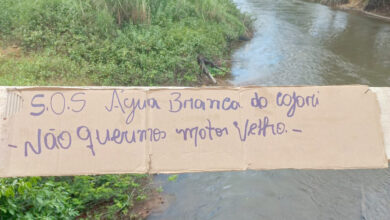 S.O.S Água Branca do cajari
- Não Queremos motor Velho. -